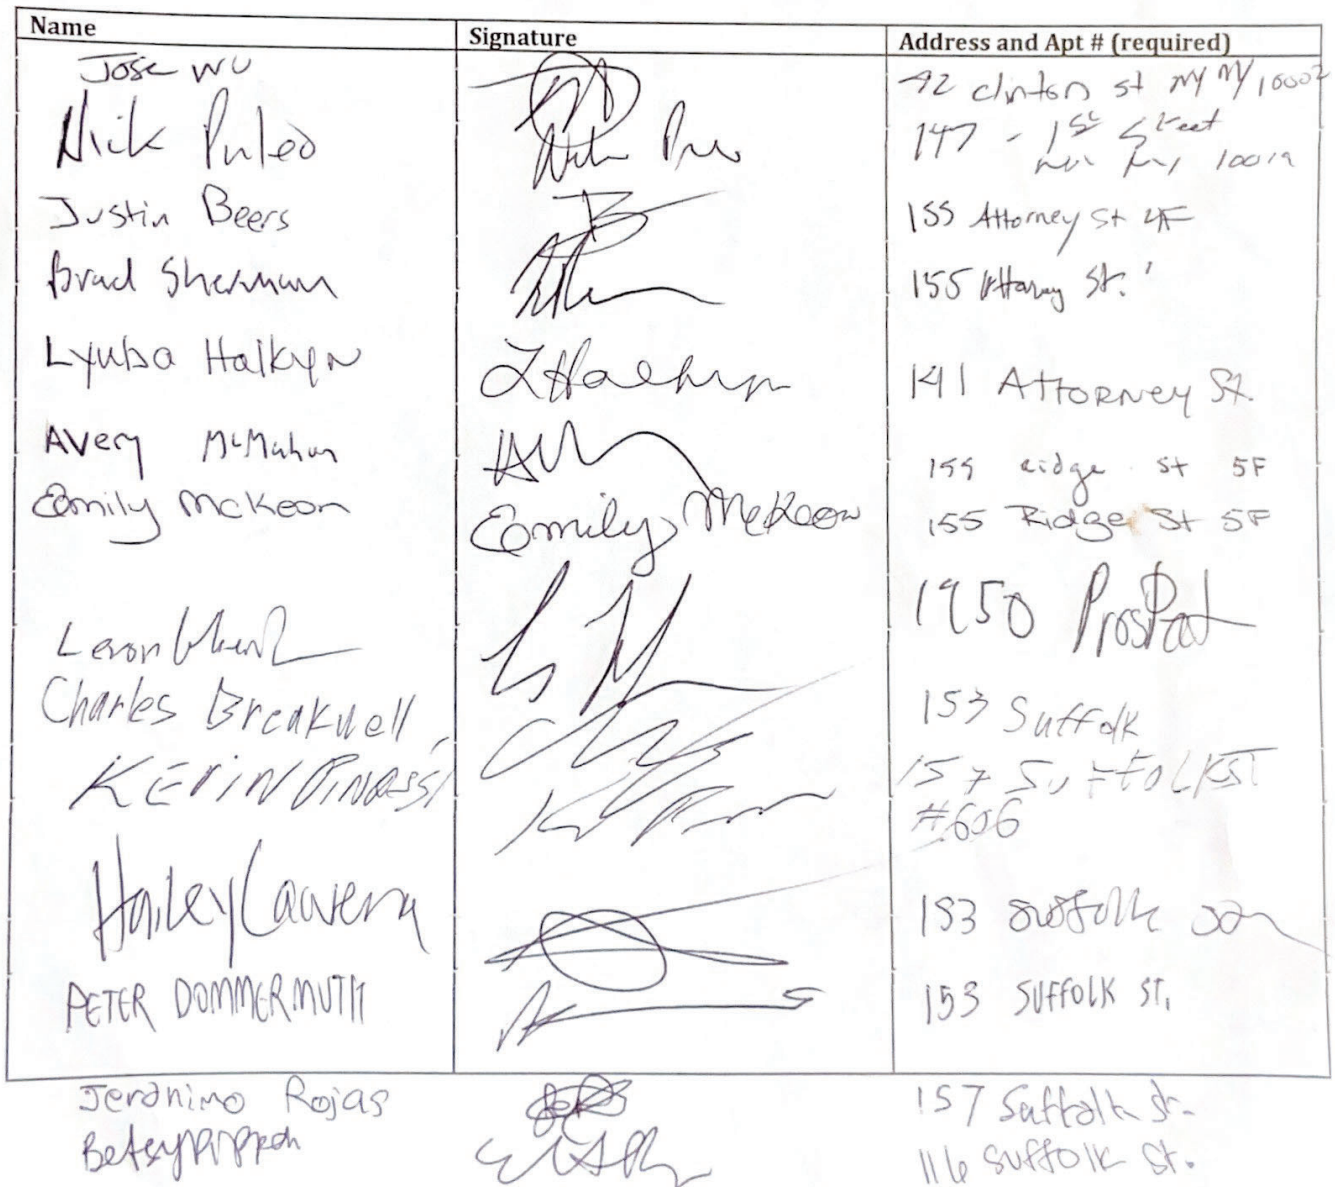 Name Signature Address and Apt # (required)
Jose Wu 92 clinton st NY NY 10002
Nick Puleo 147 - 1st Street
NY 10019
Justin Beers 155 Attorney St 4F
Brad Sherman 155 Attorney St.
Lyuba Halkyn LHalkyn 141 Attorney St.
Avery McMahon 155 Ridge St 5F
Emily McKeon Emily McKeon 155 Ridge St 5F
1950
Charles Breakwell 153 Suffolk
KEVIN 157 SUFFOLK ST
#606
Hailey 153 Suffolk
PETER DOMMERMUTH 153 SUFFOLK ST.
Jeronimo Rojas 157 Suffolk St.
Betsy 116 Suffolk St.